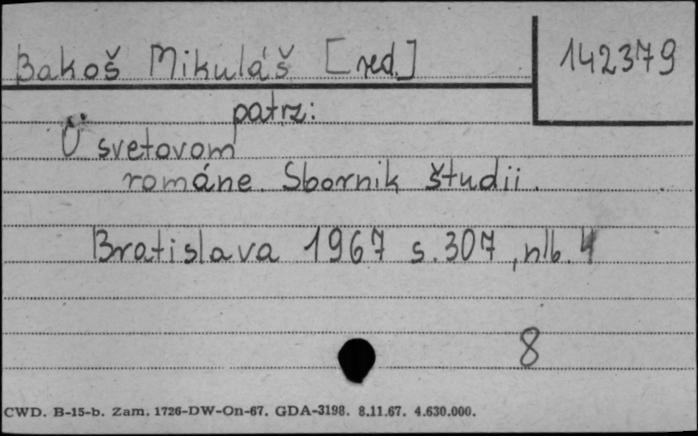 Bakoš Mikuláš [red.] 142379
patrz:
O svetovom
románe. Sbornik študii.
Bratislava 1967 s. 307, nlb. 4
8
CWD. B-15-b. Zam. 1726-DW-On-67. GDA-3198. 8.11.67. 4.630.000.